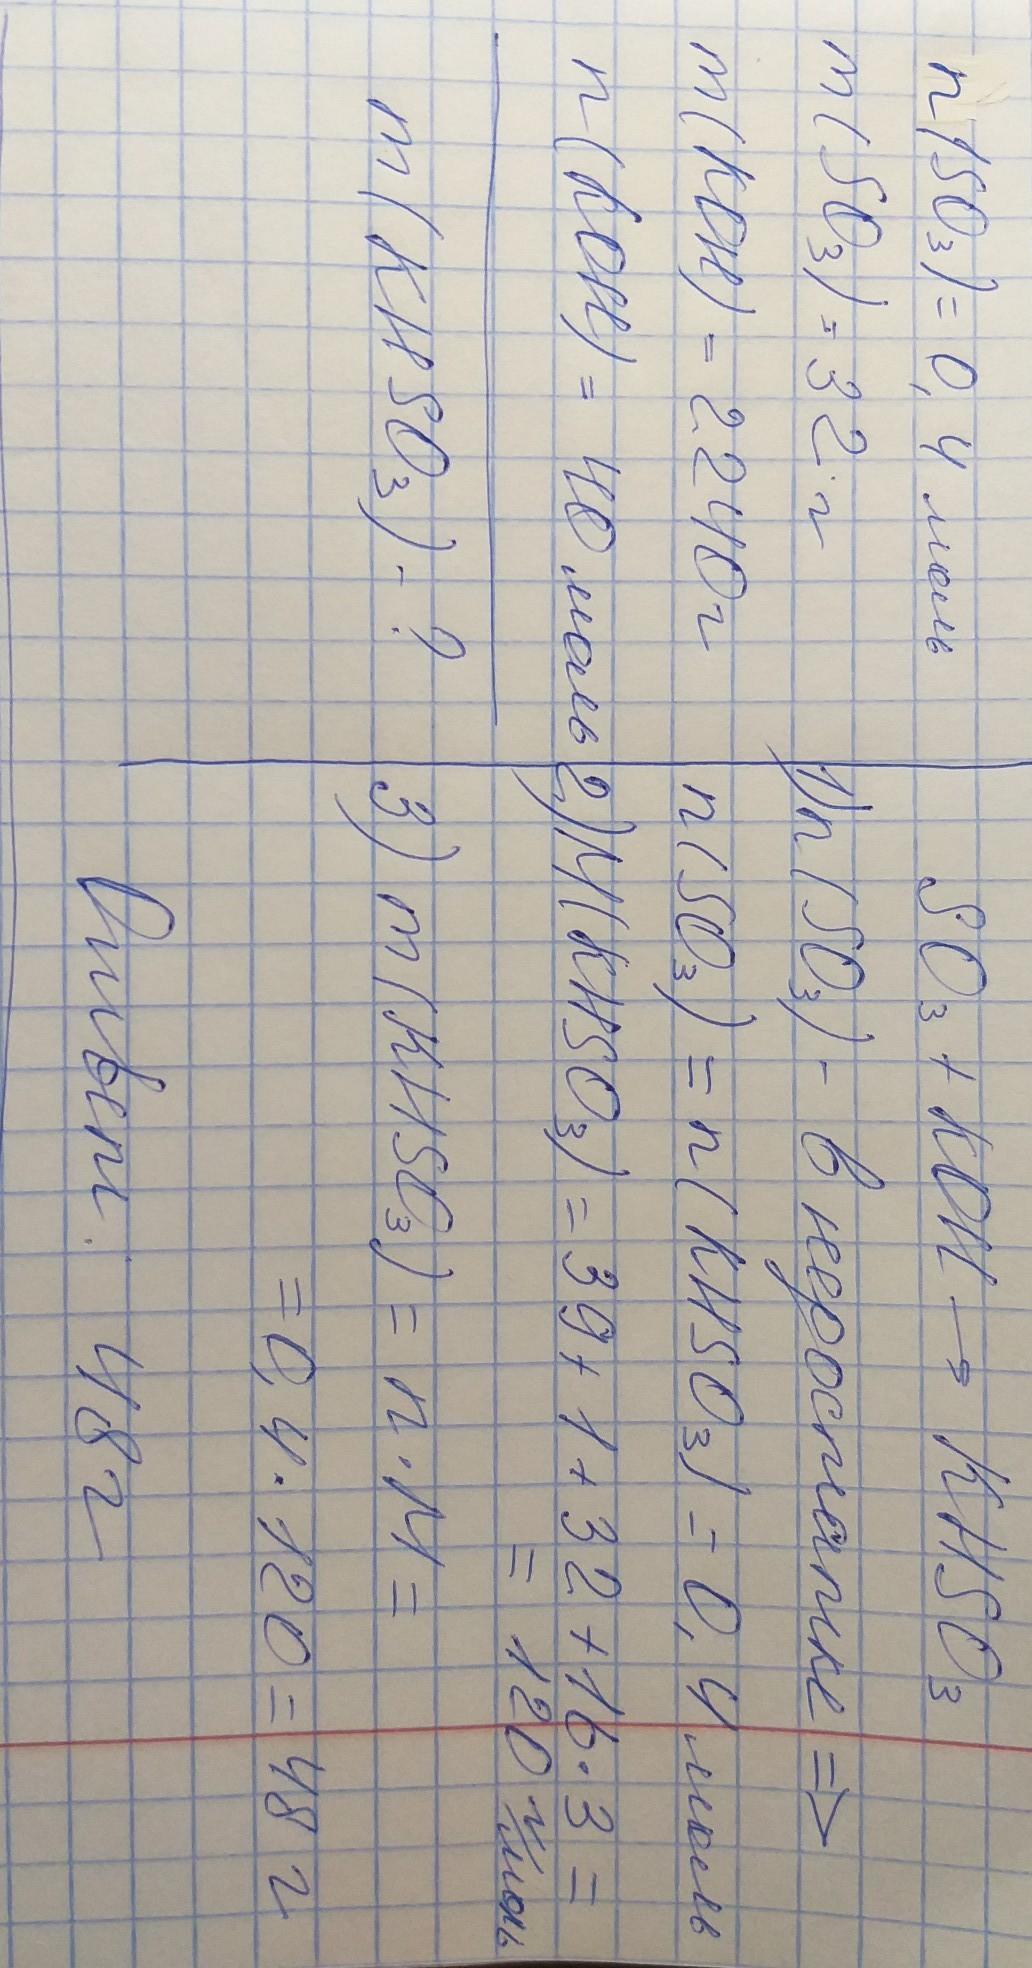 n(SO₃) = 0,4 моль
m(SO₃) = 32 г
m(KOH) = 2240 г
n(KOH) = 40 моль
m(KHSO₃) - ?
SO₃ + KOH → KHSO₃
1) n(SO₃) - в недостатке ⇒
n(SO₃) = n(KHSO₃) = 0,4 моль
2) M(KHSO₃) = 39 + 1 + 32 + 16 · 3 =
= 120 г/моль
3) m(KHSO₃) = n · M =
= 0,4 · 120 = 48 г
Ответ: 48 г